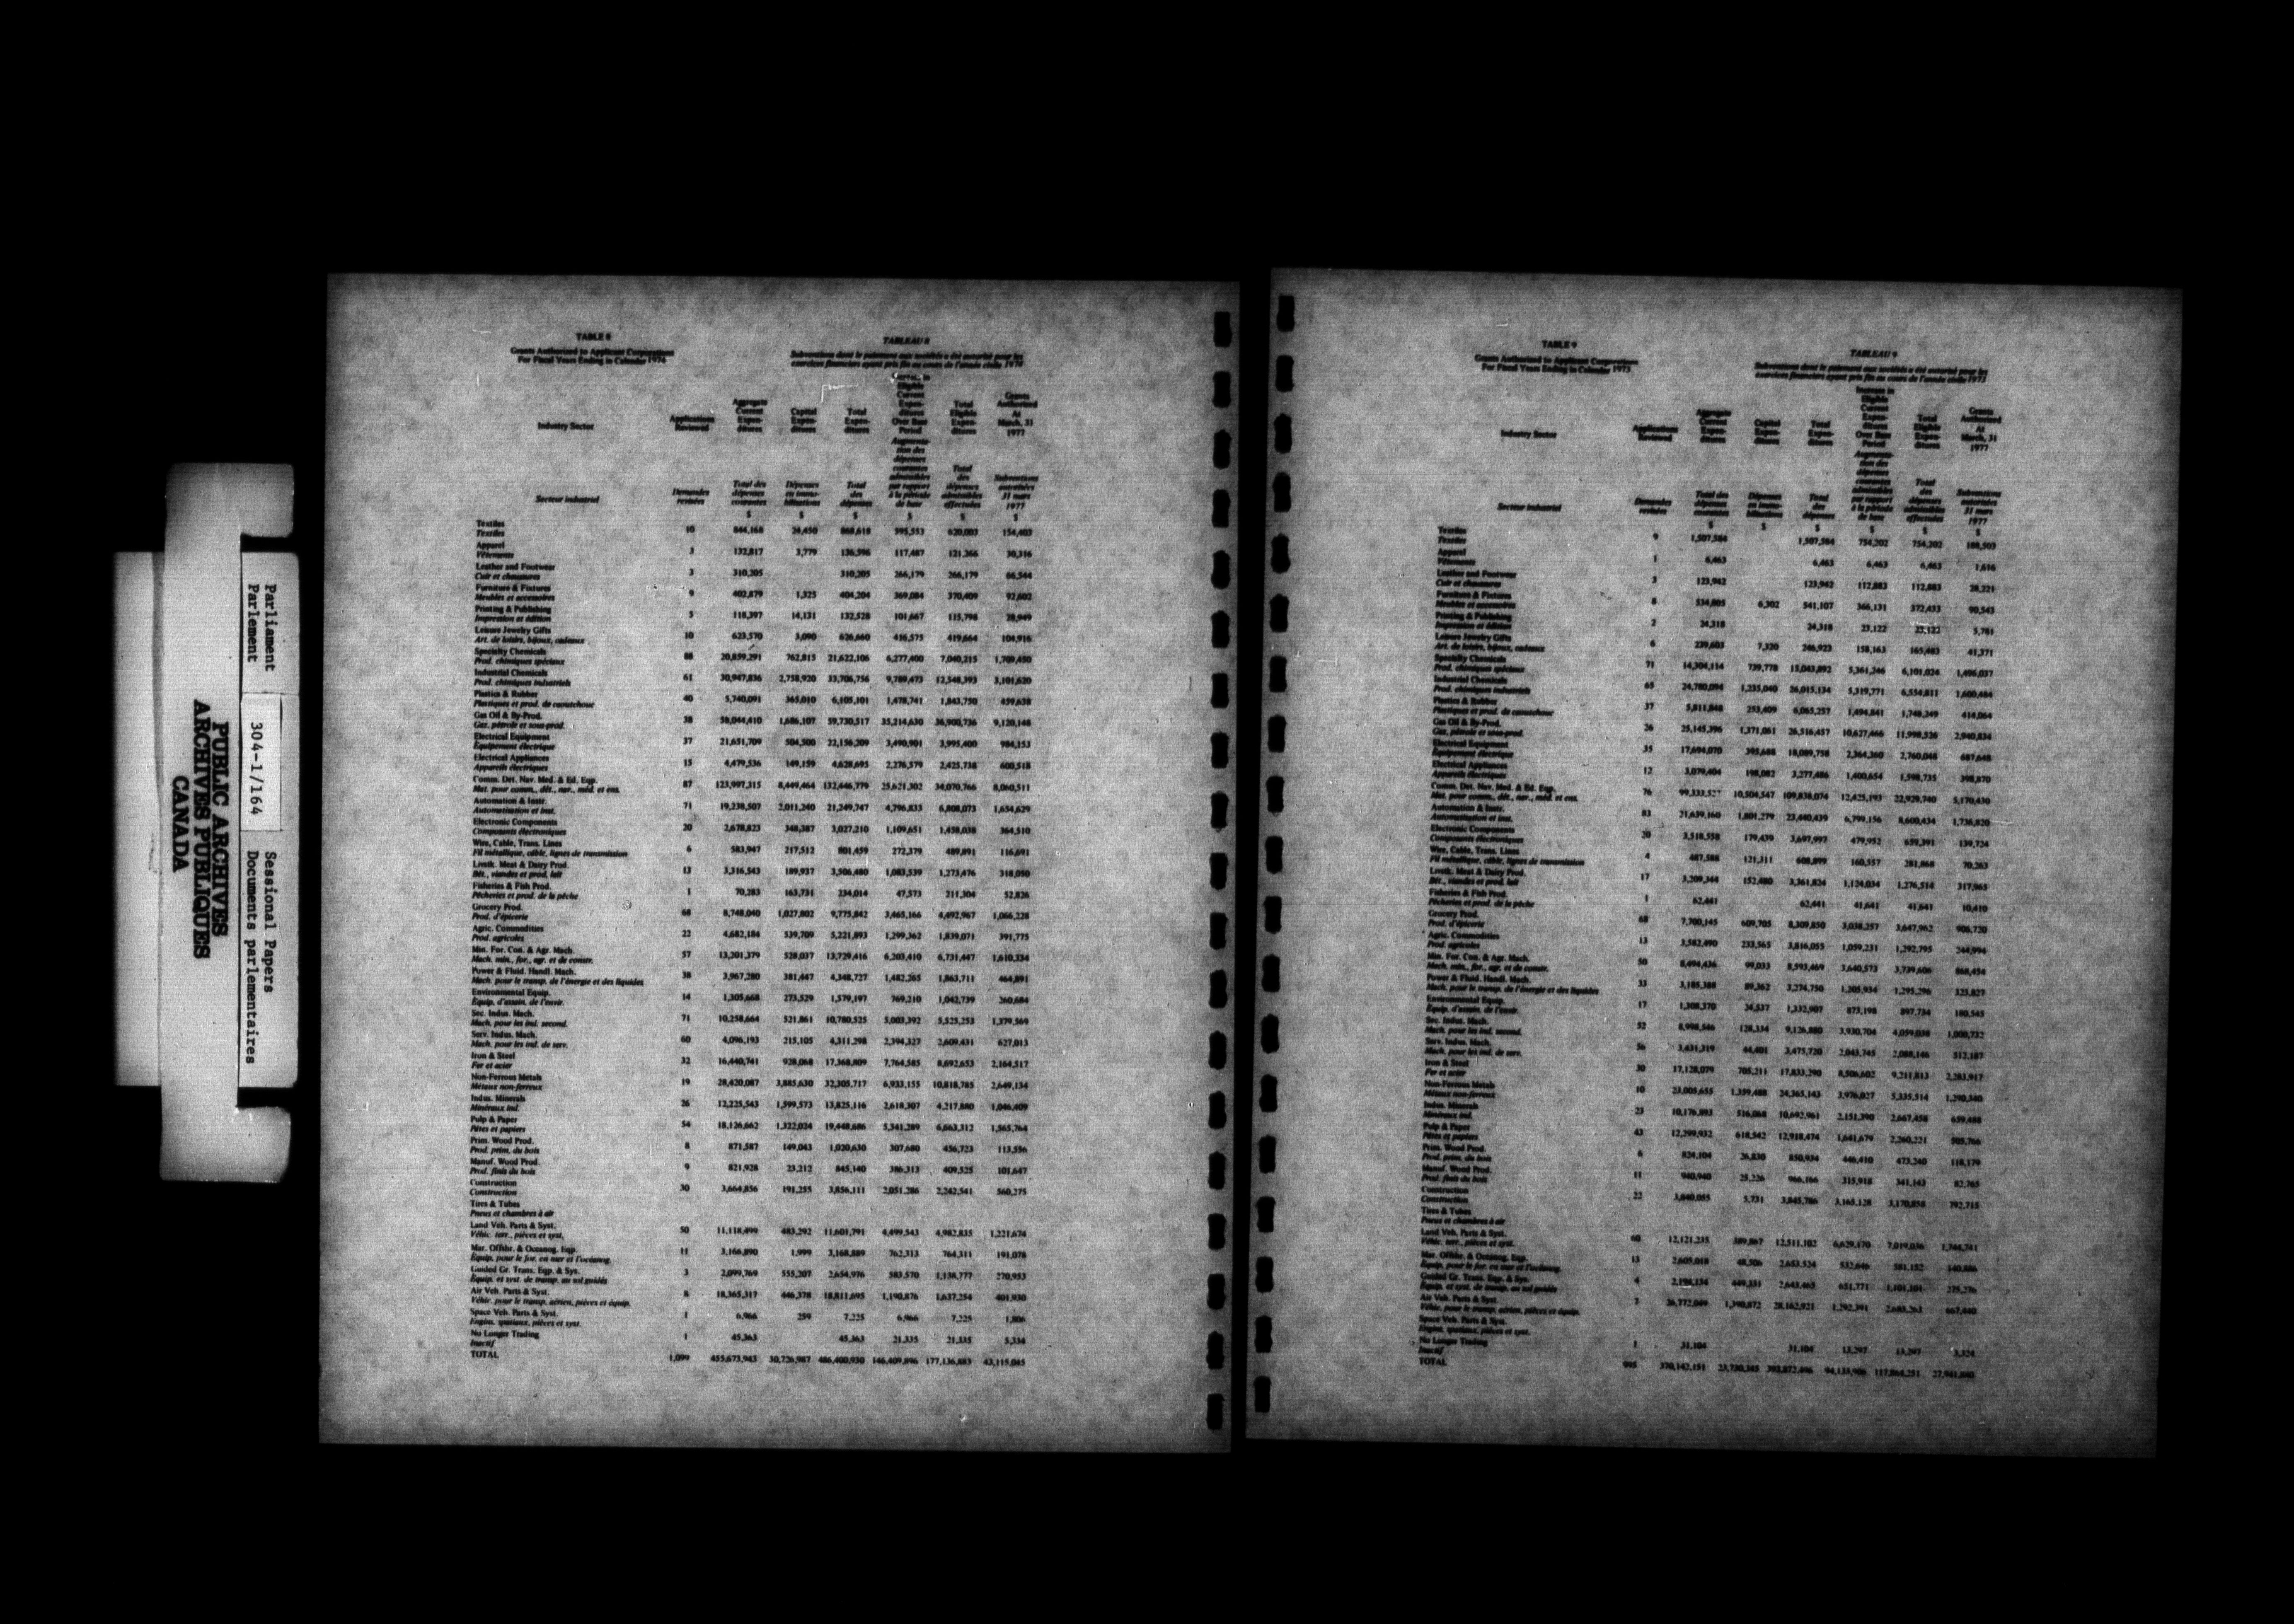 Parliament
Parlement
304-1/164
Sessional Papers
Documents parlementaires
PUBLIC ARCHIVES
ARCHIVES PUBLIQUES
CANADA
TABLE 8
Grants Authorized to Applicant Corporations
For Fiscal Years Ending in Calendar 1974
TABLEAU 8
Subventions dont le paiement aux sociétés a été autorisé pour les
exercices financiers ayant pris fin au cours de l'année civile 1974
Industry Sector
Applications
Reviewed
Aggregate
Current
Expen-
ditures
Capital
Expen-
ditures
Total
Expen-
ditures
Eligible
Current
Expen-
ditures
Over Base
Period
Total
Eligible
Expen-
ditures
Grants
Authorized
At
March, 31
1977
Secteur industriel
Demandes
revisées
Total des
dépenses
courantes
Dépenses
en immo-
bilisations
Total
des
dépenses
Augmenta-
tion des
dépenses
courantes
admissibles
par rapport
à la période
de base
Total
des
dépenses
admissibles
effectuées
Subventions
autorisées
31 mars
1977
$ $ $ $ $ $
Textiles
Textiles 10 844,168 868,618 595,553 620,003 154,403
Apparel
Vêtements 3 132,817 3,779 136,596 117,487 121,266 30,316
Leather and Footwear
Cuir et chaussures 3 310,205 310,205 266,179 266,179 66,544
Furniture & Fixtures
Meubles et accessoires 9 402,879 1,325 404,204 369,084 370,409 92,602
Printing & Publishing
Impression et édition 5 118,397 14,131 132,528 101,667 115,798 28,949
Leisure Jewelry Gifts
Art. de loisirs, bijoux, cadeaux 10 623,570 3,090 626,660 416,575 419,664 104,916
Specialty Chemicals
Prod. chimiques spéciaux 88 20,859,291 762,815 21,622,106 6,277,400 7,040,215 1,709,450
Industrial Chemicals
Prod. chimiques industriels 61 30,947,836 2,758,920 33,706,756 9,789,473 12,548,393 3,101,620
Plastics & Rubber
Plastiques et prod. de caoutchouc 40 5,740,091 365,010 6,105,101 1,478,741 1,843,750 459,638
Gas Oil & By-Prod.
Gaz, pétrole et sous-prod. 38 58,044,410 1,686,107 59,730,517 35,214,630 36,900,736 9,120,148
Electrical Equipment
Équipement électrique 37 21,651,709 504,500 22,156,209 3,490,901 3,995,400 984,153
Electrical Appliances
Appareils électriques 15 4,479,536 149,159 4,628,695 2,276,579 2,425,738 600,518
Comm. Det. Nav. Med. & Ed. Eqp.
Mat. pour comm., dét., nav., méd. et ens. 87 123,997,315 8,449,464 132,446,779 25,621,302 34,070,766 8,060,511
Automation & Instr.
Automatisation et inst. 71 19,238,507 2,011,240 21,249,747 4,796,833 6,808,073 1,654,629
Electronic Components
Composants électroniques 20 2,678,823 348,387 3,027,210 1,109,651 1,458,038 364,510
Wire, Cable, Trans. Lines
Fil métallique, câble, lignes de transmission 6 583,947 217,512 801,459 272,379 489,891 116,691
Livstk. Meat & Dairy Prod.
Bét., viandes et prod. lait 13 3,316,543 189,937 3,506,480 1,083,539 1,273,476 318,050
Fisheries & Fish Prod.
Pêcheries et prod. de la pêche 1 70,283 163,731 234,014 47,573 211,304 52,826
Grocery Prod.
Prod. d'épicerie 68 8,748,040 1,027,802 9,775,842 3,465,166 4,492,967 1,066,228
Agric. Commodities
Prod. agricoles 22 4,682,184 539,709 5,221,893 1,299,362 1,839,071 391,775
Min. For. Con. & Agr. Mach.
Mach. min., for., agr. et de constr. 57 13,201,379 528,037 13,729,416 6,203,410 6,731,447 1,610,334
Power & Fluid. Handl. Mach.
Mach. pour le transp. de l'énergie et des liquides 38 3,967,280 381,447 4,348,727 1,482,265 1,863,711 464,891
Environmental Equip.
Équip. d'assain. de l'envir. 14 1,305,668 273,529 1,579,197 769,210 1,042,739 260,684
Sec. Indus. Mach.
Mach. pour les ind. second. 71 10,258,664 521,861 10,780,525 5,003,392 5,525,253 1,379,569
Serv. Indus. Mach.
Mach. pour les ind. de serv. 60 4,096,193 215,105 4,311,298 2,394,327 2,609,431 627,013
Iron & Steel
Fer et acier 32 16,440,741 928,068 17,368,809 7,764,585 8,692,653 2,164,517
Non-Ferrous Metals
Métaux non-ferreux 19 28,420,087 3,885,630 32,305,717 6,933,155 10,818,785 2,649,134
Indus. Minerals
Minéraux ind. 26 12,225,543 1,599,573 13,825,116 2,618,307 4,217,880 1,046,409
Pulp & Paper
Pâtes et papiers 54 18,126,662 1,322,024 19,448,686 5,341,289 6,663,312 1,565,764
Prim. Wood Prod.
Prod. prim. du bois 8 871,587 149,043 1,020,630 307,680 456,723 113,556
Manuf. Wood Prod.
Prod. finis du bois 9 821,928 23,212 845,140 386,313 409,525 101,647
Construction
Construction 30 3,664,856 191,255 3,856,111 2,051,286 2,242,541 560,275
Tires & Tubes
Pneus et chambres à air
Land Veh. Parts & Syst.
Véhic. terr., pièces et syst. 50 11,118,499 483,292 11,601,791 4,499,543 4,982,835 1,221,674
Mar. Offshr. & Oceanog. Eqp.
Équip. pour le for. en mer et l'océanog. 11 3,166,890 1,999 3,168,889 762,313 764,311 191,078
Guided Gr. Trans. Eqp. & Sys.
Équip. et syst. de transp. au sol guidés 3 2,099,769 555,207 2,654,976 583,570 1,138,777 270,953
Air Veh. Parts & Syst.
Véhic. pour le transp. aérien, pièces et équip. 8 18,365,317 446,378 18,811,695 1,190,876 1,637,254 401,930
Space Veh. Parts & Syst.
Engins. spatiaux, pièces et syst. 1 6,966 259 7,225 6,966 7,225 1,806
No Longer Trading
Inactif 1 45,363 45,363 21,335 21,335 5,334
TOTAL 1,099 455,673,943 30,726,987 486,400,930 146,409,896 177,136,883 43,115,045
TABLE 9
Grants Authorized to Applicant Corporations
For Fiscal Years Ending in Calendar 1973
TABLEAU 9
Subventions dont le paiement aux sociétés a été autorisé pour les
exercices financiers ayant pris fin au cours de l'année civile 1973
Industry Sector
Applications
Reviewed
Aggregate
Current
Expen-
ditures
Capital
Expen-
ditures
Total
Expen-
ditures
Increase in
Eligible
Current
Expen-
ditures
Over Base
Period
Total
Eligible
Expen-
ditures
Grants
Authorized
At
March, 31
1977
Secteur industriel
Demandes
revisées
Total des
dépenses
courantes
Dépenses
en immo-
bilisations
Total
des
dépenses
Augmenta-
tion des
dépenses
courantes
admissibles
par rapport
à la période
de base
Total
des
dépenses
admissibles
effectuées
Subventions
autorisées
31 mars
1977
$ $ $ $ $ $
Textiles
Textiles 9 1,507,584 1,507,584 754,202 754,202 188,503
Apparel
Vêtements 1 6,463 6,463 6,463 6,463 1,616
Leather and Footwear
Cuir et chaussures 3 123,942 123,942 112,883 112,883 28,221
Furniture & Fixtures
Meubles et accessoires 8 534,805 6,302 541,107 366,131 372,433 90,543
Printing & Publishing
Impression et édition 2 24,318 24,318 23,122 23,122 5,781
Leisure Jewelry Gifts
Art. de loisirs, bijoux, cadeaux 6 239,603 7,320 246,923 158,163 165,483 41,371
Specialty Chemicals
Prod. chimiques spéciaux 71 14,304,114 739,778 15,043,892 5,361,246 6,101,024 1,496,037
Industrial Chemicals
Prod. chimiques industriels 65 24,780,094 1,235,040 26,015,134 5,319,771 6,554,811 1,600,484
Plastics & Rubber
Plastiques et prod. de caoutchouc 37 5,811,848 253,409 6,065,257 1,494,841 1,748,249 414,064
Gas Oil & By-Prod.
Gaz, pétrole et sous-prod. 26 25,145,396 1,371,061 26,516,457 10,627,466 11,998,526 2,940,834
Electrical Equipment
Équipement électrique 35 17,694,070 395,688 18,089,758 2,364,360 2,760,048 687,648
Electrical Appliances
Appareils électriques 12 3,079,404 198,082 3,277,486 1,400,654 1,598,735 398,870
Comm. Det. Nav. Med. & Ed. Eqp.
Mat. pour comm., dét., nav., méd. et ens. 76 99,333,527 10,504,547 109,838,074 12,425,193 22,929,740 5,170,430
Automation & Instr.
Automatisation et inst. 83 21,639,160 1,801,279 23,440,439 6,799,156 8,600,434 1,736,820
Electronic Components
Composants électroniques 20 3,518,558 179,439 3,697,997 479,952 659,391 139,724
Wire, Cable, Trans. Lines
Fil métallique, câble, lignes de transmission 4 487,588 121,311 608,899 160,557 281,868 70,263
Livstk. Meat & Dairy Prod.
Bét., viandes et prod. lait 17 3,209,344 152,480 3,361,824 1,124,034 1,276,514 317,965
Fisheries & Fish Prod.
Pêcheries et prod. de la pêche 1 62,441 62,441 41,641 41,641 10,410
Grocery Prod.
Prod. d'épicerie 68 7,700,145 609,705 8,309,850 3,038,257 3,647,962 906,720
Agric. Commodities
Prod. agricoles 13 3,582,490 233,565 3,816,055 1,059,231 1,292,795 244,994
Min. For. Con. & Agr. Mach.
Mach. min., for., agr. et de constr. 50 8,494,436 99,033 8,593,469 3,640,573 3,739,606 868,454
Power & Fluid. Handl. Mach.
Mach. pour le transp. de l'énergie et des liquides 33 3,185,388 89,362 3,274,750 1,295,296 325,827
Environmental Equip.
Équip. d'assain. de l'envir. 17 1,308,370 24,537 1,332,907 873,198 897,734 180,545
Sec. Indus. Mach.
Mach. pour les ind. second. 52 8,998,546 128,334 9,126,880 3,930,704 4,059,038 1,000,732
Serv. Indus. Mach.
Mach. pour les ind. de serv. 56 3,431,319 44,401 3,475,720 2,043,745 2,088,146 512,187
Iron & Steel
Fer et acier 30 17,128,079 705,211 17,833,290 8,506,602 9,211,813 2,283,917
Non-Ferrous Metals
Métaux non-ferreux 10 23,005,655 1,359,488 24,365,143 3,976,027 5,335,514 1,290,340
Indus. Minerals
Minéraux ind. 23 10,176,893 516,068 10,692,961 2,151,390 2,667,458 659,488
Pulp & Paper
Pâtes et papiers 43 12,299,932 618,542 12,918,474 1,641,679 2,260,221 505,766
Prim. Wood Prod.
Prod. prim. du bois 6 824,104 26,830 850,934 446,410 473,240 118,179
Manuf. Wood Prod.
Prod. finis du bois 11 940,940 25,226 966,166 315,918 341,143 82,765
Construction
Construction 22 3,840,055 5,731 3,845,786 3,165,128 3,170,858 792,715
Tires & Tubes
Pneus et chambres à air
Land Veh. Parts & Syst.
Véhic. terr., pièces et syst. 60 12,121,235 389,867 12,511,102 6,629,170 7,019,036 1,744,741
Mar. Offshr. & Oceanog. Eqp.
Équip. pour le for. en mer et l'océanog. 13 2,605,018 48,506 2,653,524 532,646 581,152 140,886
Guided Gr. Trans. Eqp. & Sys.
Équip. et syst. de transp. au sol guidés 4 2,194,134 449,331 2,643,465 651,771 1,101,101 275,276
Air Veh. Parts & Syst.
Véhic. pour le transp. aérien, pièces et équip. 7 26,772,049 1,390,872 28,162,921 1,292,391 2,683,263 667,440
Space Veh. Parts & Syst.
Engins. spatiaux, pièces et syst.
No Longer Trading
Inactif 1 31,104 31,104 13,297 13,297 3,324
TOTAL 995 370,142,151 23,730,345 393,872,496 94,133,906 117,864,251